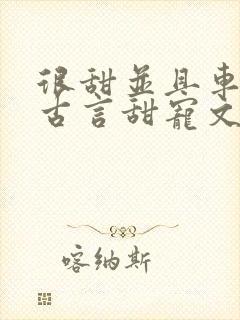 很甜並具車
古言甜寵文
喀纳斯